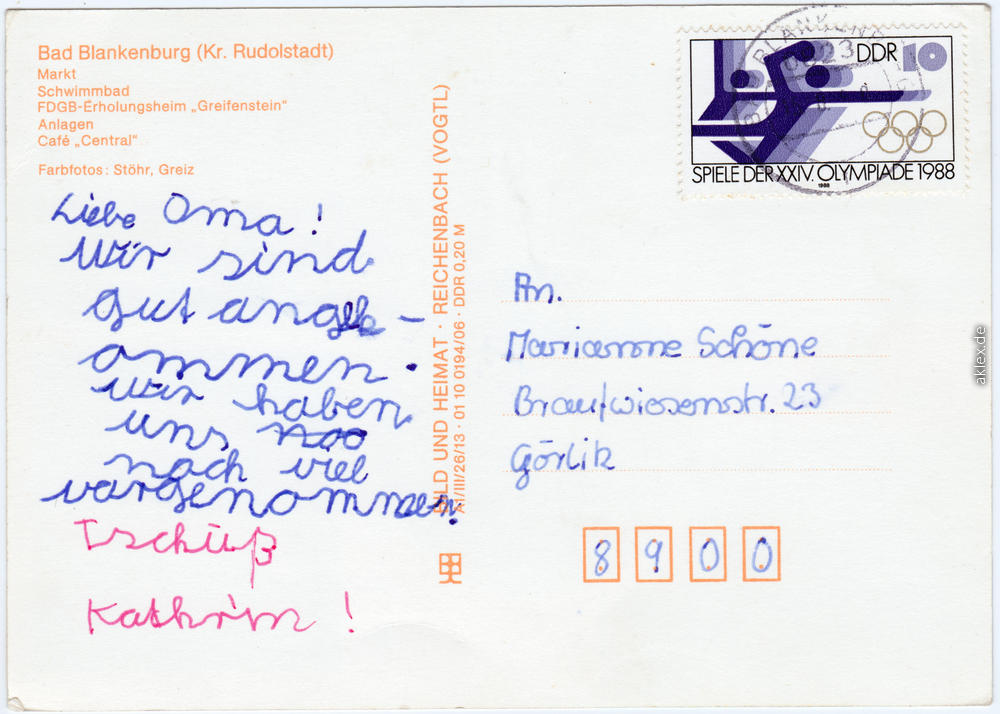 Bad Blankenburg (Kr. Rudolstadt)
Markt
Schwimmbad
FDGB-Erholungsheim „Greifenstein“
Anlagen
Café „Central“
Farbfotos: Stöhr, Greiz
Liebe Oma!
Wir sind
gut angek-
ommen.
wir haben
uns noo
noch viel
vorgenommen.
Tschüß
Kathrin!
BILD UND HEIMAT · REICHENBACH (VOGTL)
A1/III/26/13 · 01 10 0194/06 · DDR 0,20 M
DDR 10
SPIELE DER XXIV. OLYMPIADE 1988
1988
BLANKENB
6823
An.
Marianne Schöne
Brautwiesenstr. 23
Görlitz
8900
aklex.de